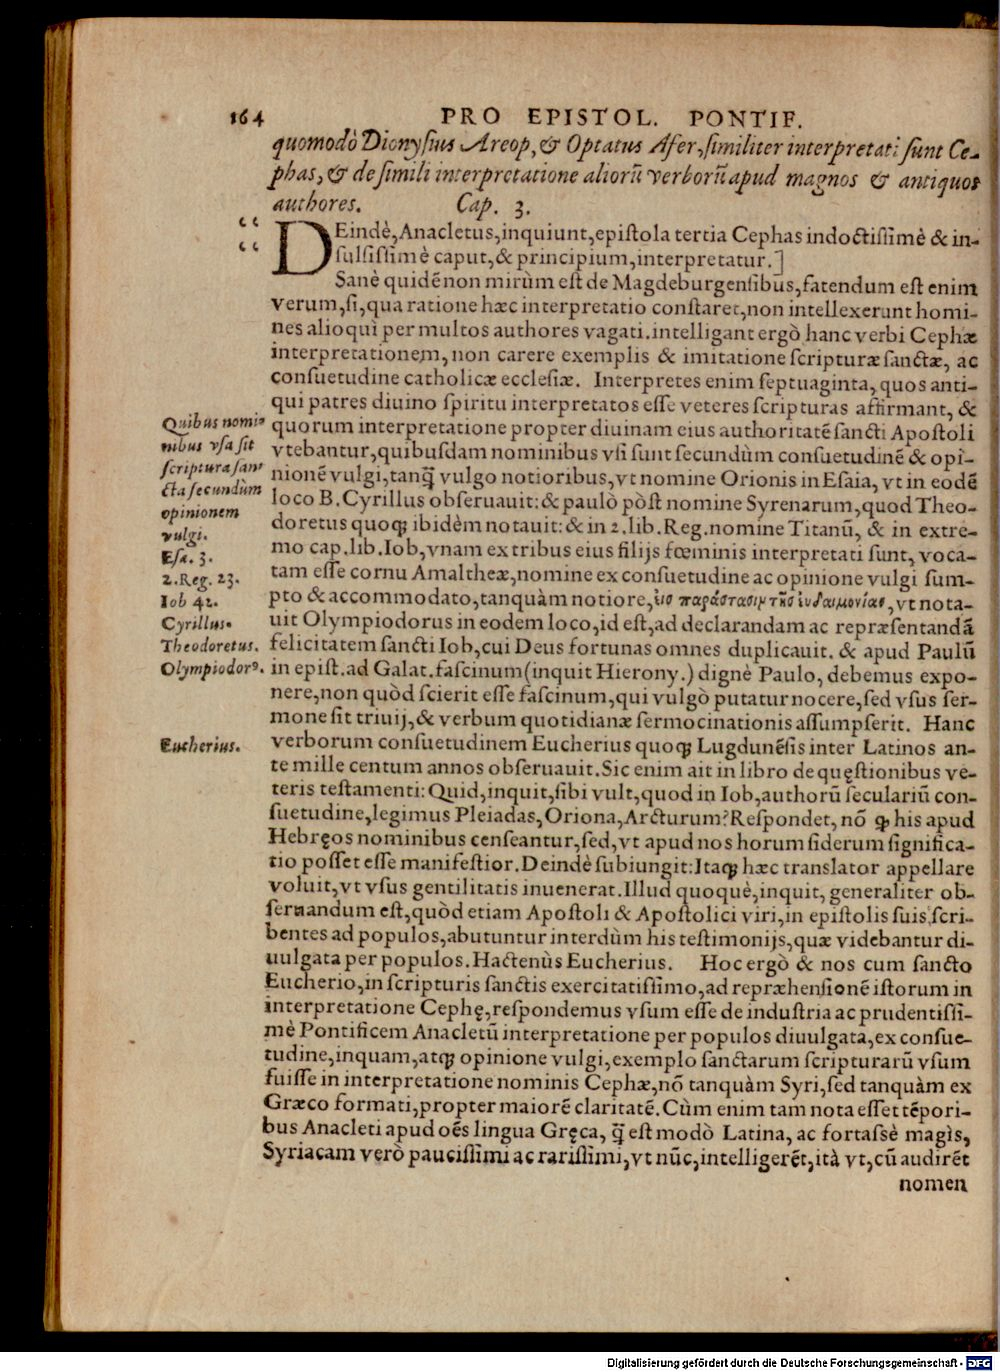 164 PRO EPISTOL. PONTIF.
quomodò Dionyſius Areop, & Optatus Afer, ſimiliter interpretati ſunt Ce-
phas, & de ſimili interpretatione aliorũ verborũ apud magnos & antiquos
authores. Cap. 3.
DEindè, Anacletus, inquiunt, epiſtola tertia Cephas indoctiſſimè & in-
ſulſiſſimè caput, & principium, interpretatur.]
Sanè quidẽ non mirùm eſt de Magdeburgenſibus, fatendum eſt enim
verum, ſi, qua ratione hæc interpretatio conſtaret, non intellexerunt homi-
nes alioqui per multos authores vagati. intelligant ergò hanc verbi Cephæ
interpretationem, non carere exemplis & imitatione ſcripturæ ſanctæ, ac
conſuetudine catholicæ eccleſiæ. Interpretes enim ſeptuaginta, quos anti-
qui patres diuino ſpiritu interpretatos eſſe veteres ſcripturas affirmant, &
quorum interpretatione propter diuinam eius authoritatẽ ſancti Apoſtoli
vtebantur, quibuſdam nominibus vſi ſunt ſecundùm conſuetudinẽ & opi-
nionẽ vulgi, tanq̃ vulgo notioribus, vt nomine Orionis in Eſaia, vt in eodẽ
loco B. Cyrillus obſeruauit: & paulò pòſt nomine Syrenarum, quod Theo-
doretus quoqꝫ ibidèm notauit: & in 2. lib. Reg. nomine Titanũ, & in extre-
mo cap. lib. Iob, vnam ex tribus eius filijs fœminis interpretati ſunt, voca-
tam eſſe cornu Amaltheæ, nomine ex conſuetudine ac opinione vulgi ſum-
pto & accommodato, tanquàm notiore, εἰσ παράστασιν τῆσ ἐυδαιμονίασ, vt nota-
uit Olympiodorus in eodem loco, id eſt, ad declarandam ac repræſentandã
felicitatem ſancti Iob, cui Deus fortunas omnes duplicauit. & apud Paulũ
in epiſt. ad Galat. faſcinum (inquit Hierony.) dignè Paulo, debemus expo-
nere, non quòd ſcierit eſſe faſcinum, qui vulgò putatur nocere, ſed vſus ſer-
mone ſit triuij, & verbum quotidianæ ſermocinationis aſſumpſerit. Hanc
verborum conſuetudinem Eucherius quoqꝫ Lugdunẽſis inter Latinos an-
te mille centum annos obſeruauit. Sic enim ait in libro de quęſtionibus ve-
teris teſtamenti: Quid, inquit, ſibi vult, quod in Iob, authorũ ſeculariũ con-
ſuetudine, legimus Pleiadas, Oriona, Arcturum? Reſpondet, nõ ꝙ his apud
Hebręos nominibus cenſeantur, ſed, vt apud nos horum ſiderum ſignifica-
tio poſſet eſſe manifeſtior. Deindè ſubiungit: Itaqꝫ hæc translator appellare
voluit, vt vſus gentilitatis inuenerat. Illud quoquè, inquit, generaliter ob-
ſeruandum eſt, quòd etiam Apoſtoli & Apoſtolici viri, in epiſtolis ſuis, ſcri-
bentes ad populos, abutuntur interdùm his teſtimonijs, quæ videbantur di-
uulgata per populos. Hactenùs Eucherius. Hoc ergò & nos cum ſancto
Eucherio, in ſcripturis ſanctis exercitatiſſimo, ad repræhenſionẽ iſtorum in
interpretatione Cephę, reſpondemus vſum eſſe de induſtria ac prudentiſſi-
mè Pontificem Anacletũ interpretatione per populos diuulgata, ex conſue-
tudine, inquam, atqꝫ opinione vulgi, exemplo ſanctarum ſcripturarũ vſum
fuiſſe in interpretatione nominis Cephæ, nõ tanquàm Syri, ſed tanquàm ex
Græco formati, propter maiorẽ claritatẽ. Cùm enim tam nota eſſet tẽpori-
bus Anacleti apud oẽs lingua Gręca, q̃ eſt modò Latina, ac fortaſsè magìs,
Syriacam verò pauciſſimi ac rariſſimi, vt nũc, intelligerẽt, ità vt, cũ audirẽt
nomen
Quibus nomi-
nibus vſa ſit
ſcriptura ſan-
cta ſecundùm
opinionem
vulgi.
Eſa. 3.
2. Reg. 23.
Iob 42.
Cyrillus.
Theodoretus.
Olympiodorꝰ.
Eucherius.
Digitalisierung gefördert durch die Deutsche Forschungsgemeinschaft - DFG